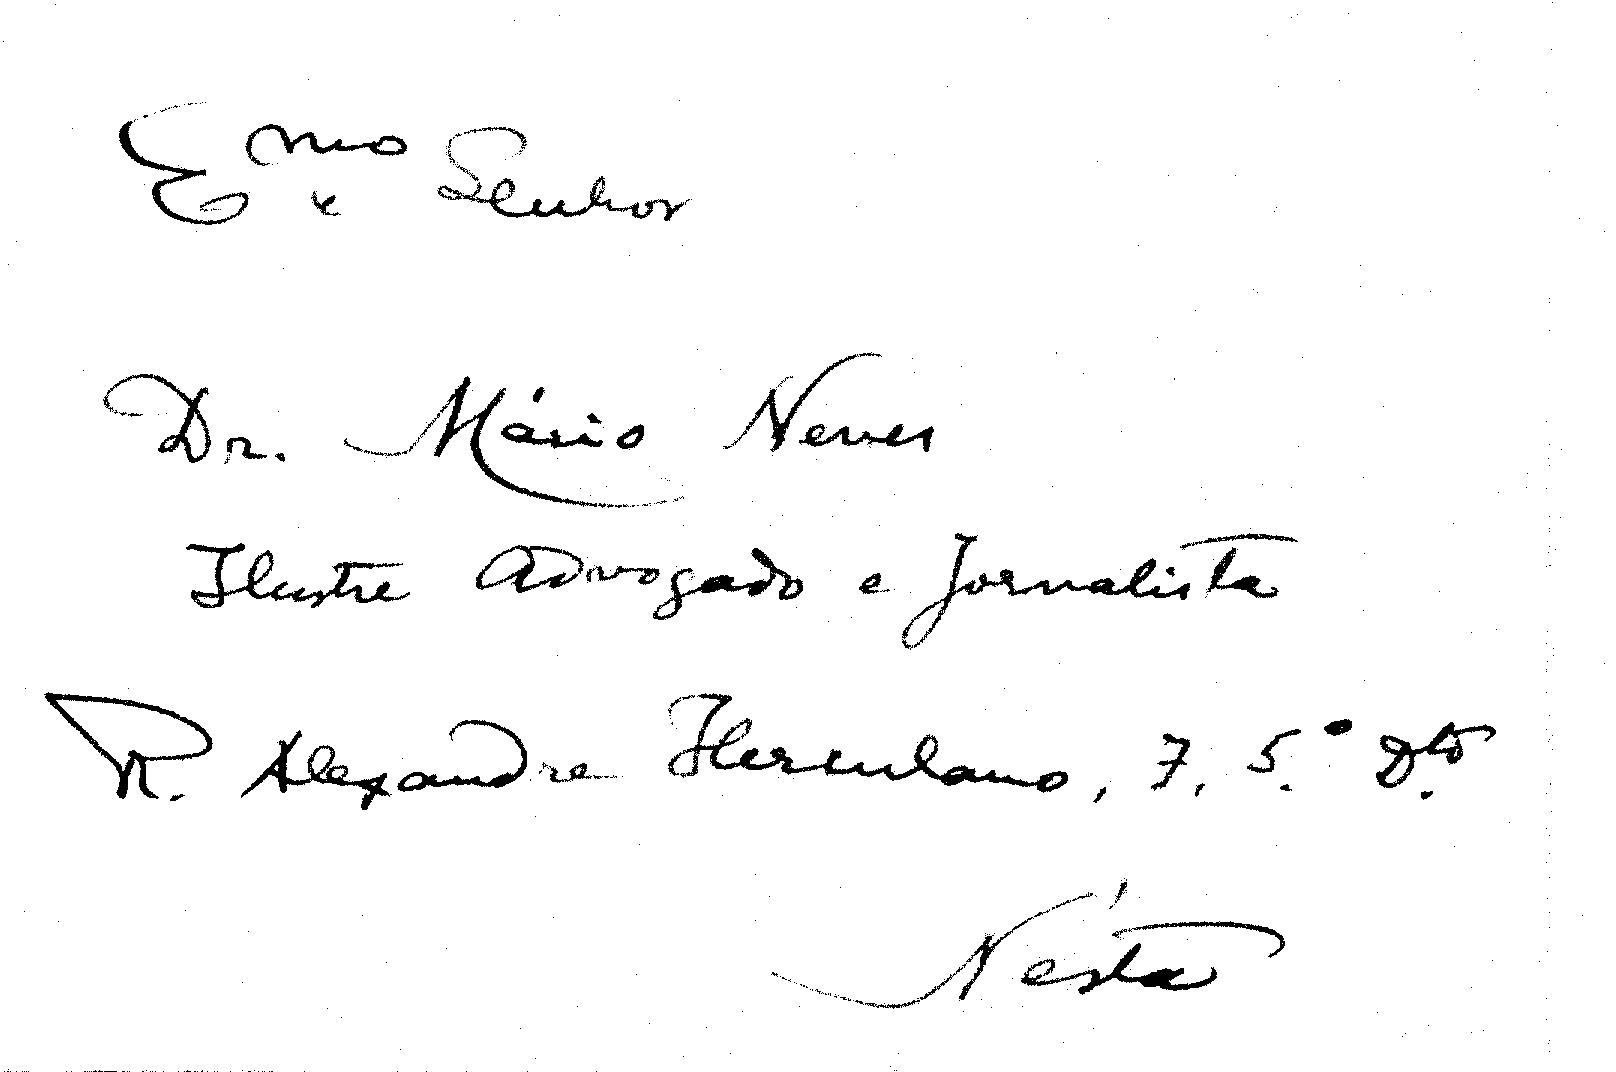 Exmo Senhor
Dr. Mário Neves
Ilustre Advogado e Jornalista
R. Alexandre Herculano, 7, 5.º Dto.
Nésta